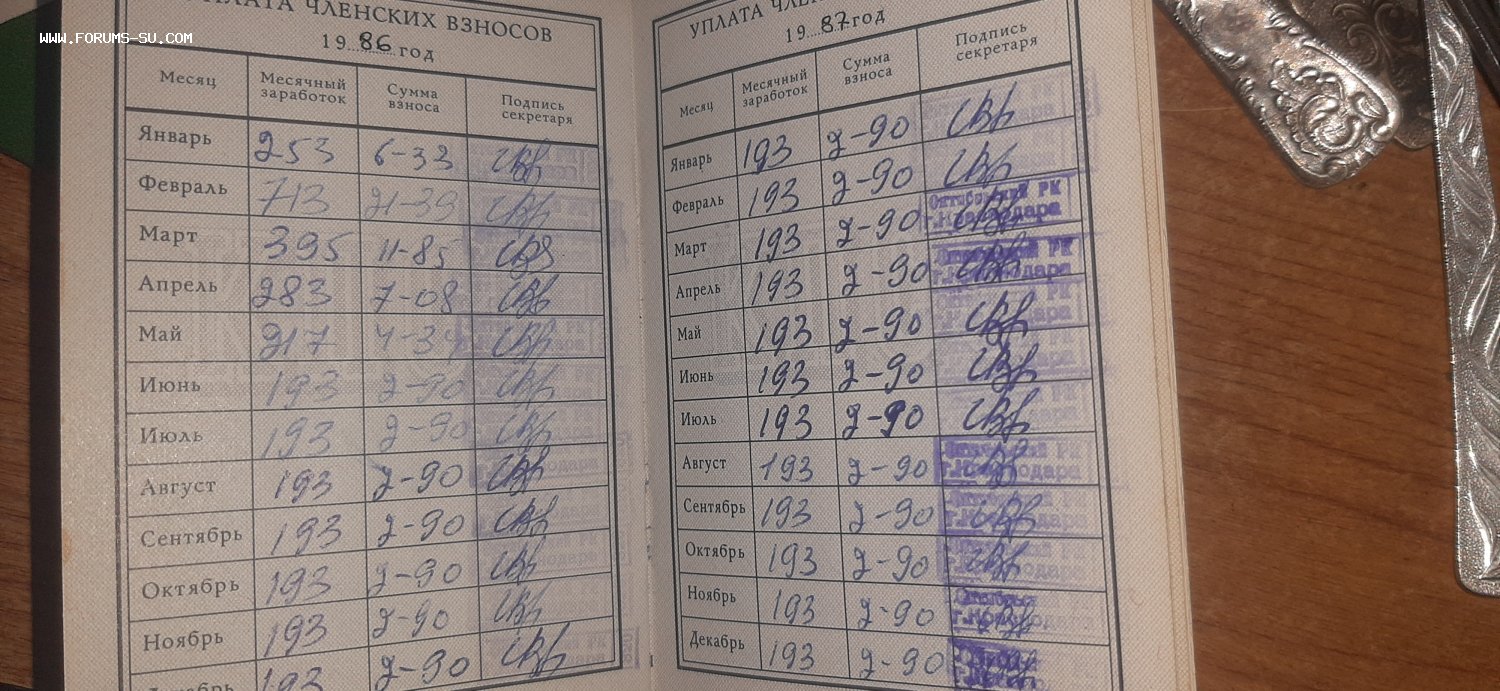 WWW.FORUMS-SU.COM
УПЛАТА ЧЛЕНСКИХ ВЗНОСОВ
19 86 год
Месяц Месячный заработок Сумма взноса Подпись секретаря
Январь 253 6-33
Февраль 713 21-39
Март 395 11-85
Апрель 283 7-08
Май 217 4-34
Июнь 193 2-90
Июль 193 2-90
Август 193 2-90
Сентябрь 193 2-90
Октябрь 193 2-90
Ноябрь 193 2-90
Декабрь 193 2-90
УПЛАТА
19 87 год
Месяц Месячный заработок Сумма взноса Подпись секретаря
Январь 193 2-90
Февраль 193 2-90
Октябрьский РК
г.Краснодара
Март 193 2-90
Апрель 193 2-90
Май 193 2-90
Июнь 193 2-90
Июль 193 2-90
Август 193 2-90
Сентябрь 193 2-90
Октябрь 193 2-90
Ноябрь 193 2-90
Декабрь 193 2-90